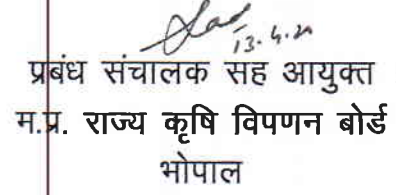 13.4.20
प्रबंध संचालक सह आयुक्त
म.प्र. राज्य कृषि विपणन बोर्ड
भोपाल